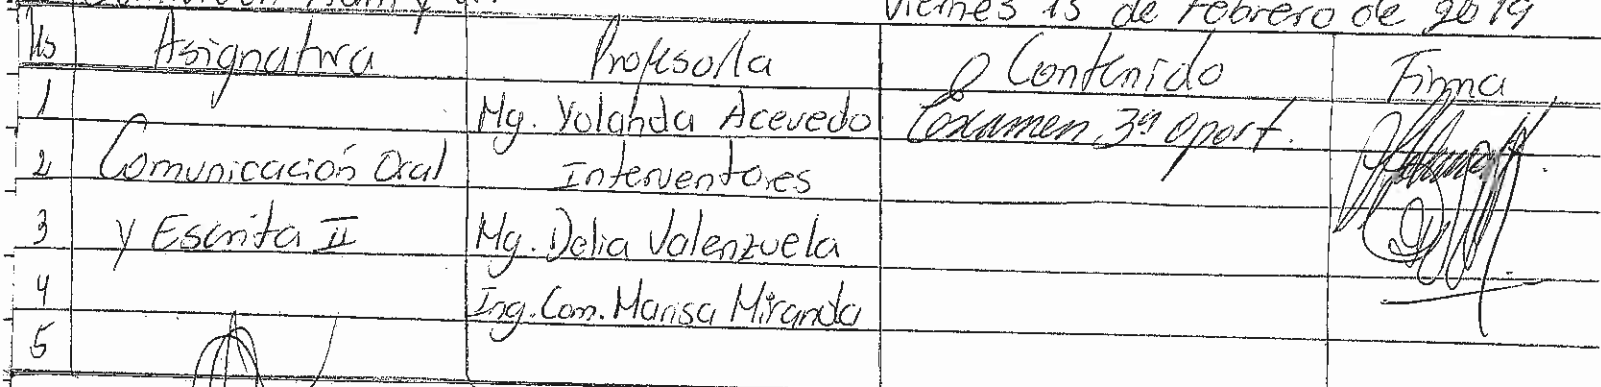 Viernes 15 de Febrero de 2019
Hs Asignatura Profesor/a Contenido Firma
1 Mg. Yolanda Acevedo Examen 3ª oport.
2 Comunicación Oral Interventores
3 y Escrita II Mg. Delia Valenzuela
4 Ing. Com. Marisa Miranda
5